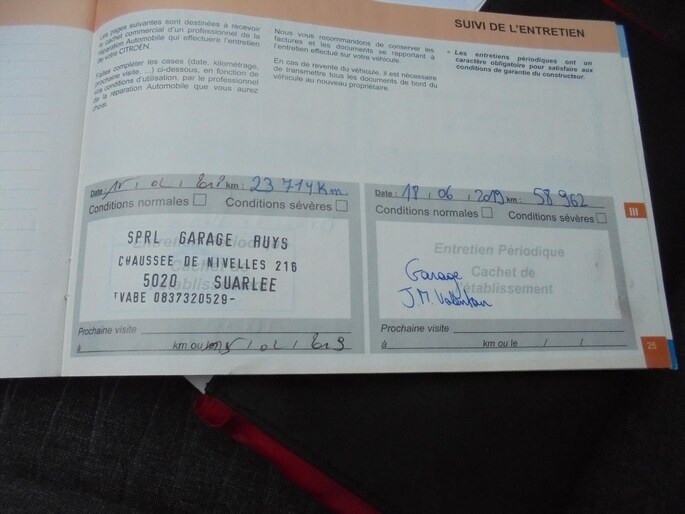 SUIVI DE L'ENTRETIEN
Les pages suivantes sont destinées à recevoir
le cachet commercial d'un professionnel de la
réparation Automobile qui effectuera l'entretien
de votre CITROËN.
Faites compléter les cases (date, kilométrage,
prochaine visite, ...) ci-dessous, en fonction de
vos conditions d'utilisation, par le professionnel
de la réparation Automobile que vous aurez
choisi.
Nous vous recommandons de conserver les
factures et les documents se rapportant à
l'entretien effectué sur votre véhicule.
En cas de revente du véhicule, il est nécessaire
de transmettre tous les documents de bord du
véhicule au nouveau propriétaire.
* Les entretiens périodiques ont un
caractère obligatoire pour satisfaire aux
conditions de garantie du constructeur.
Date : km : 23 714 Km
Conditions normales Conditions sévères
SPRL GARAGE RUYS
CHAUSSEE DE NIVELLES 216
5020 SUARLEE
TVABE 0837320529-
Prochaine visite
à km ou le
Date : 18 , 06 , 2019 km : 58 962
Conditions normales Conditions sévères
Entretien Périodique
Cachet de
l'établissement
Garage
J.M.
Prochaine visite
à km ou le / /
III
25